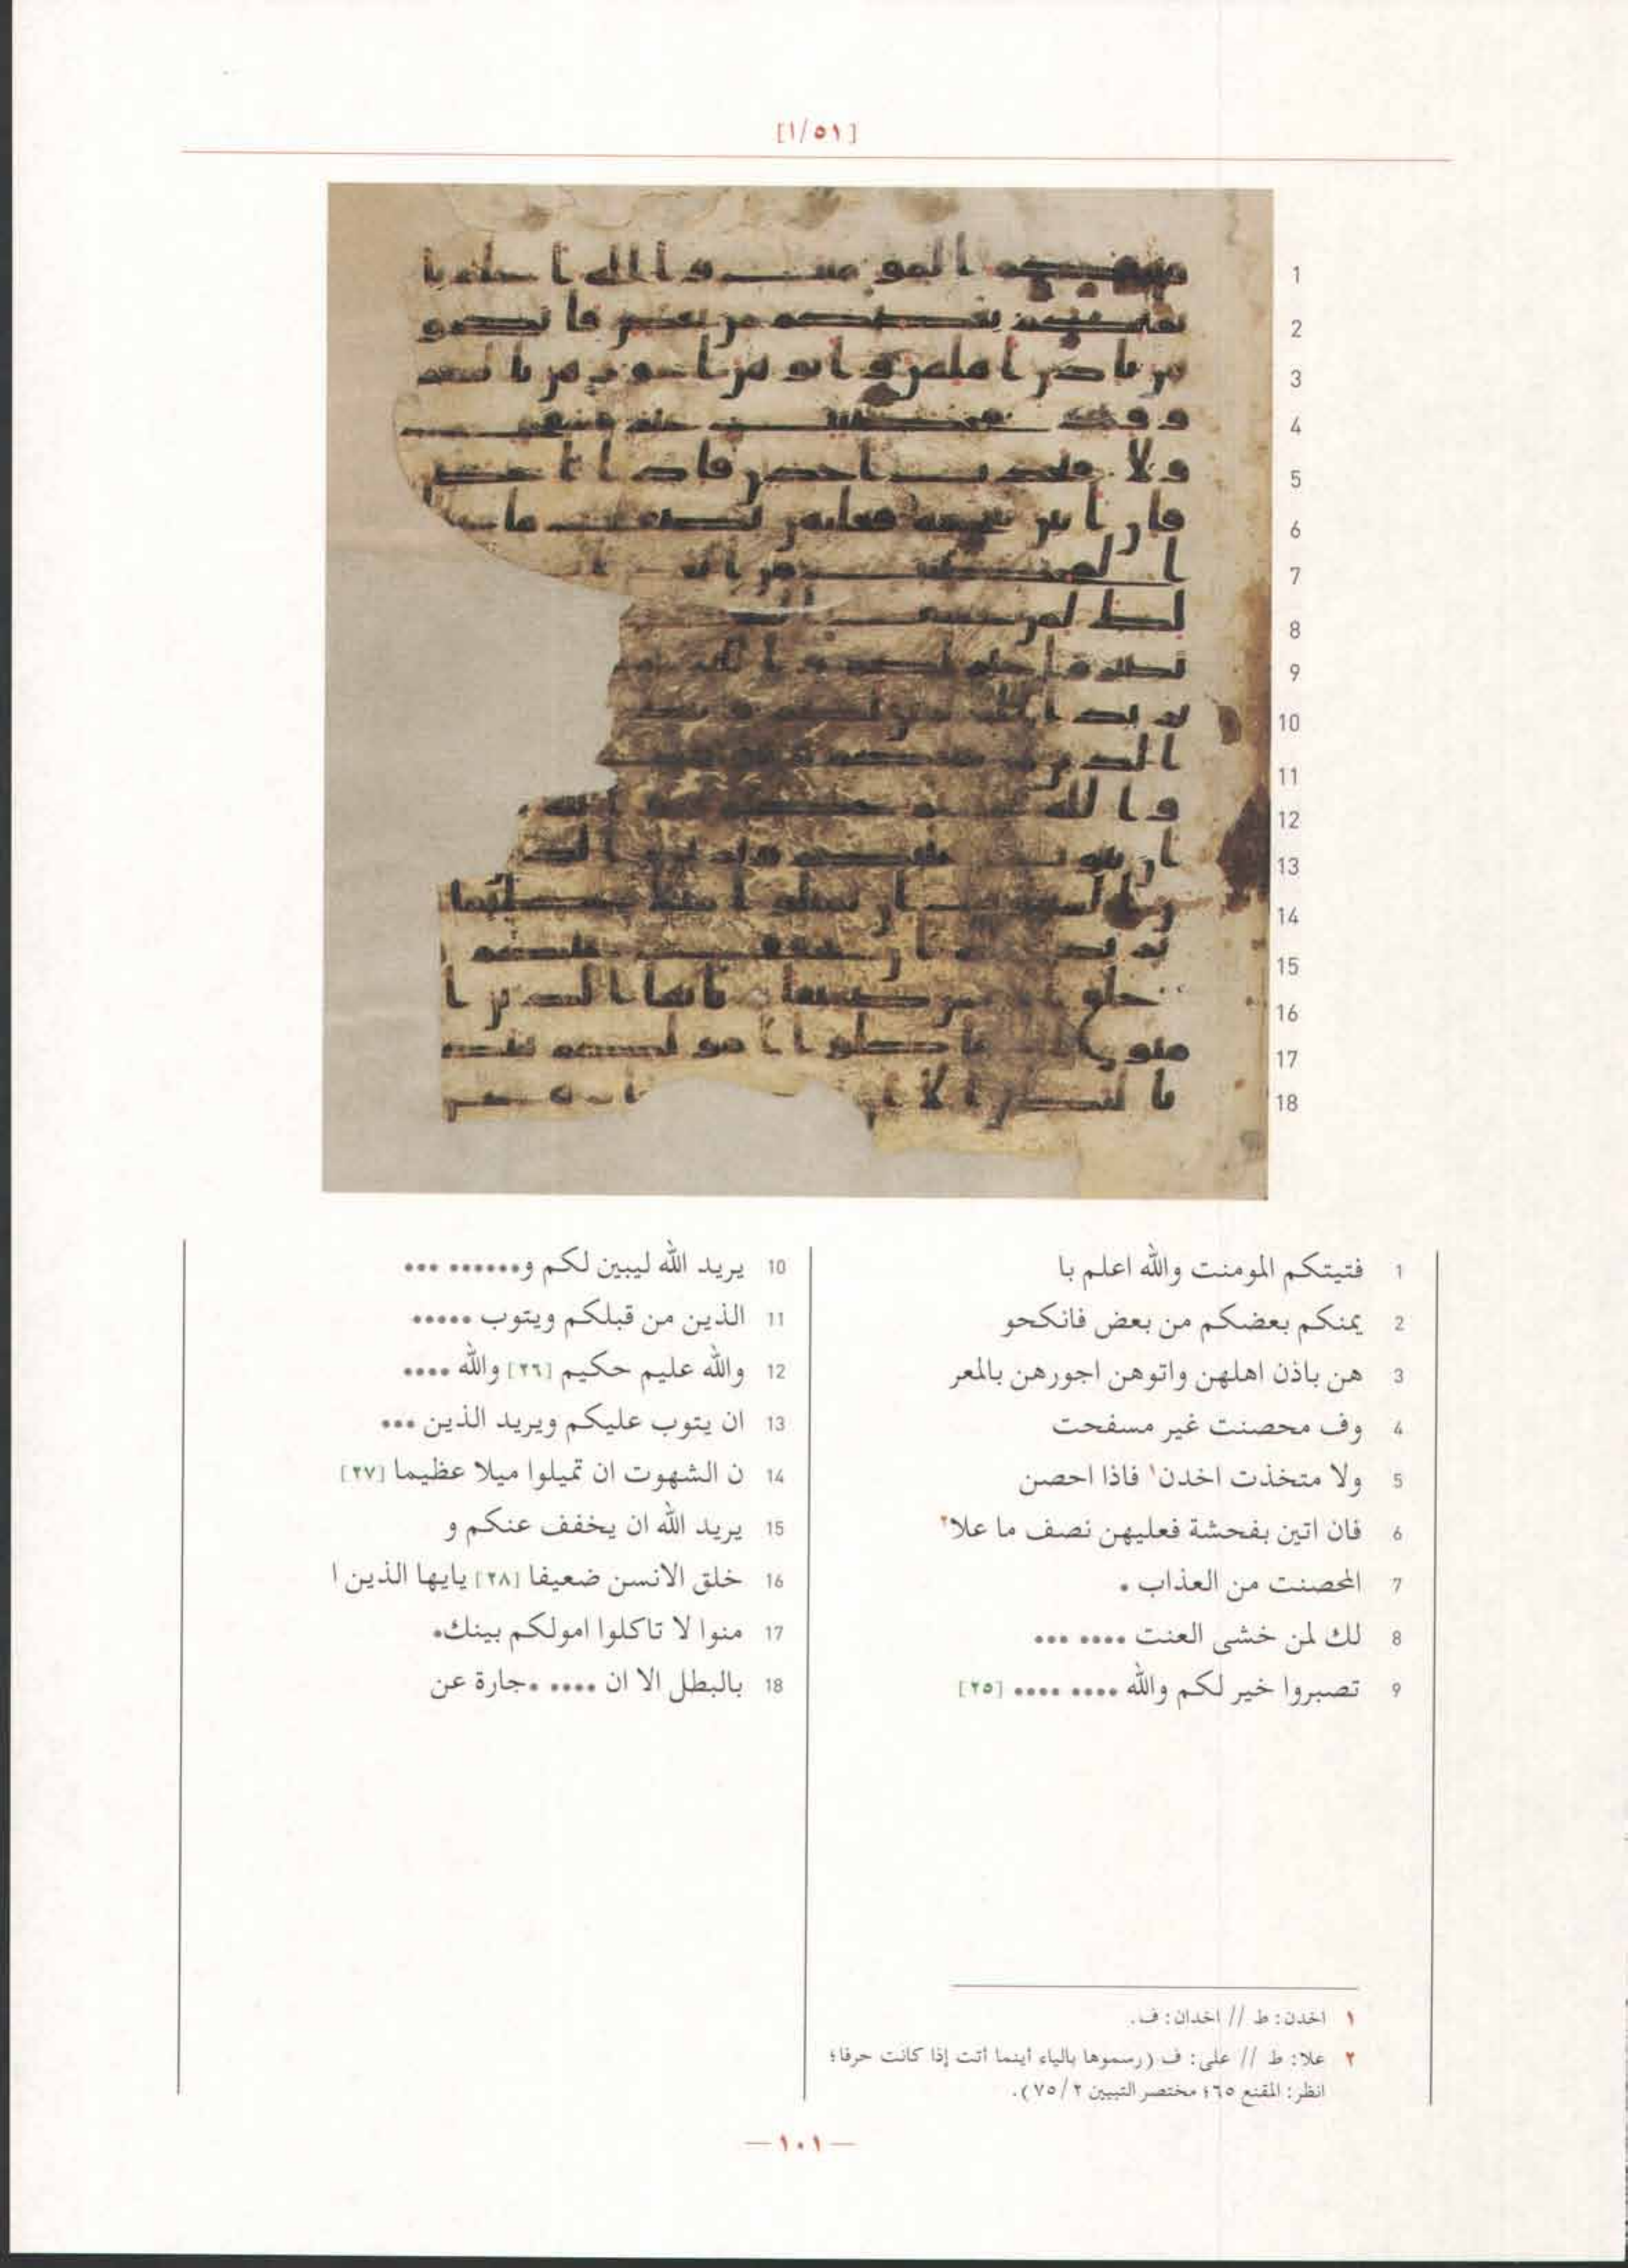 [١/٥١]
1 فتيتكم المومنت والله اعلم با
2 يمنكم بعضكم من بعض فانكحو
3 هن باذن اهلهن واتوهن اجورهن بالمعر
4 وف محصنت غير مسفحت
5 ولا متخذت اخدن١ فاذا احصن
6 فان اتين بفحشة فعليهن نصف ما علا٢
7 المحصنت من العذاب •
8 لك لمن خشى العنت •••• •••
9 تصبروا خير لكم والله •••• •••• [٢٥]
10 يريد الله ليبين لكم و•••••• •••
11 الذين من قبلكم ويتوب •••••
12 والله عليم حكيم [٢٦] والله ••••
13 ان يتوب عليكم ويريد الذين •••
14 ن الشهوت ان تميلوا ميلا عظيما [٢٧]
15 يريد الله ان يخفف عنكم و
16 خلق الانسن ضعيفا [٢٨] يايها الذين ا
17 منوا لا تاكلوا امولكم بينك•
18 بالبطل الا ان •••• •جارة عن
١ اخدن: ط // اخدان: ف.
٢ علا: ط // على: ف (رسموها بالياء أينما أتت إذا كانت حرفا؛
انظر: المقنع ٦٥؛ مختصر التبيين ٢/ ٧٥).
—١٠١—